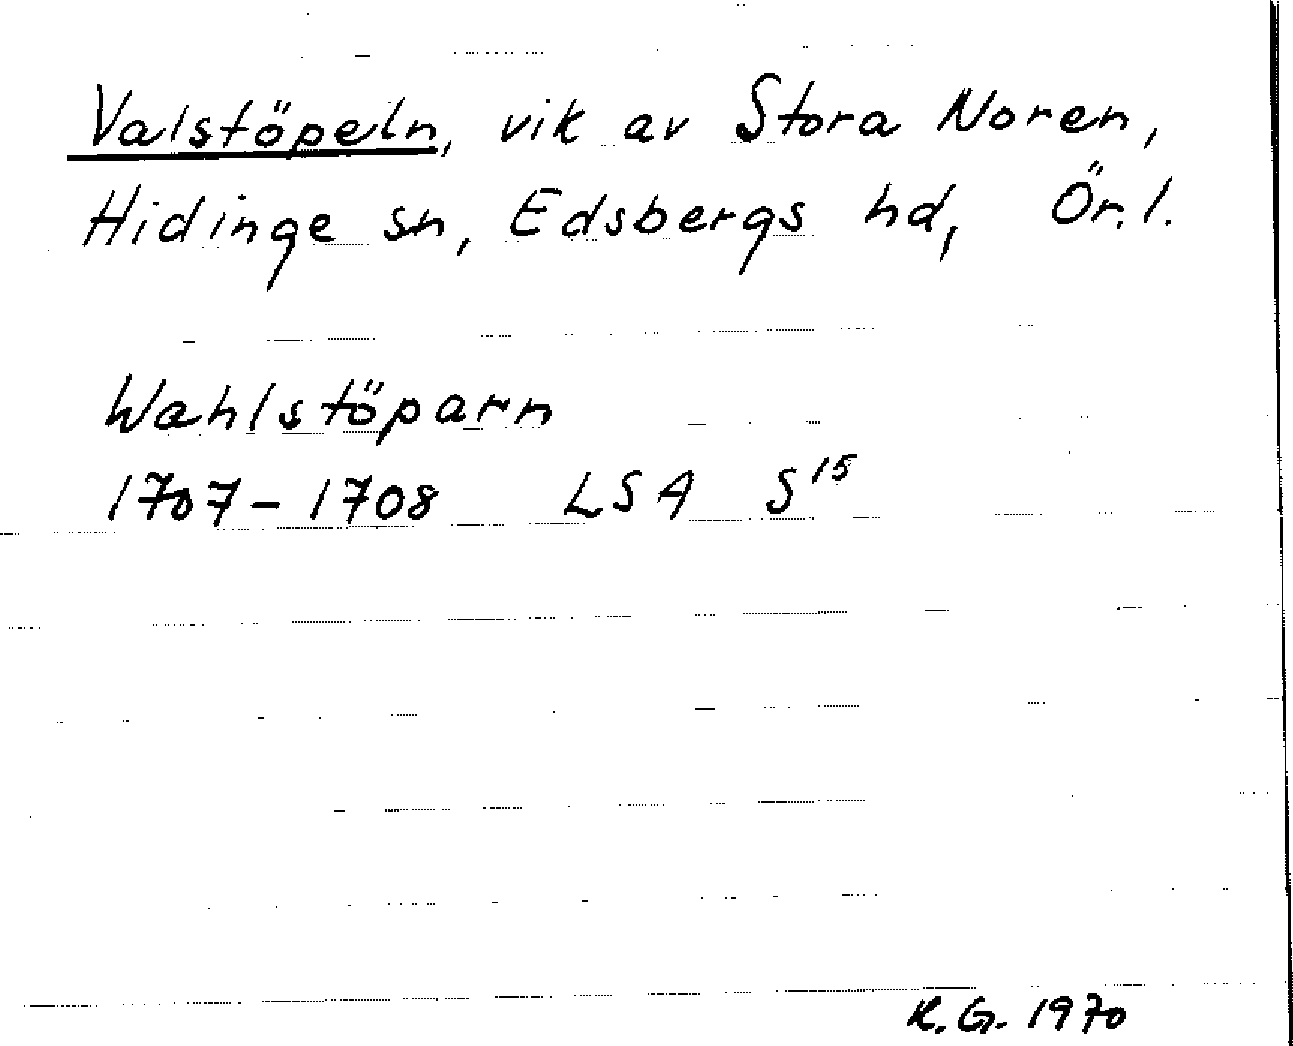 Valstöpeln, vik av Stora Noren,
Hidinge sn, Edsbergs hd, Ör. l.
Wahlstöparn
1707-1708 LSA S15
R.G. 1970